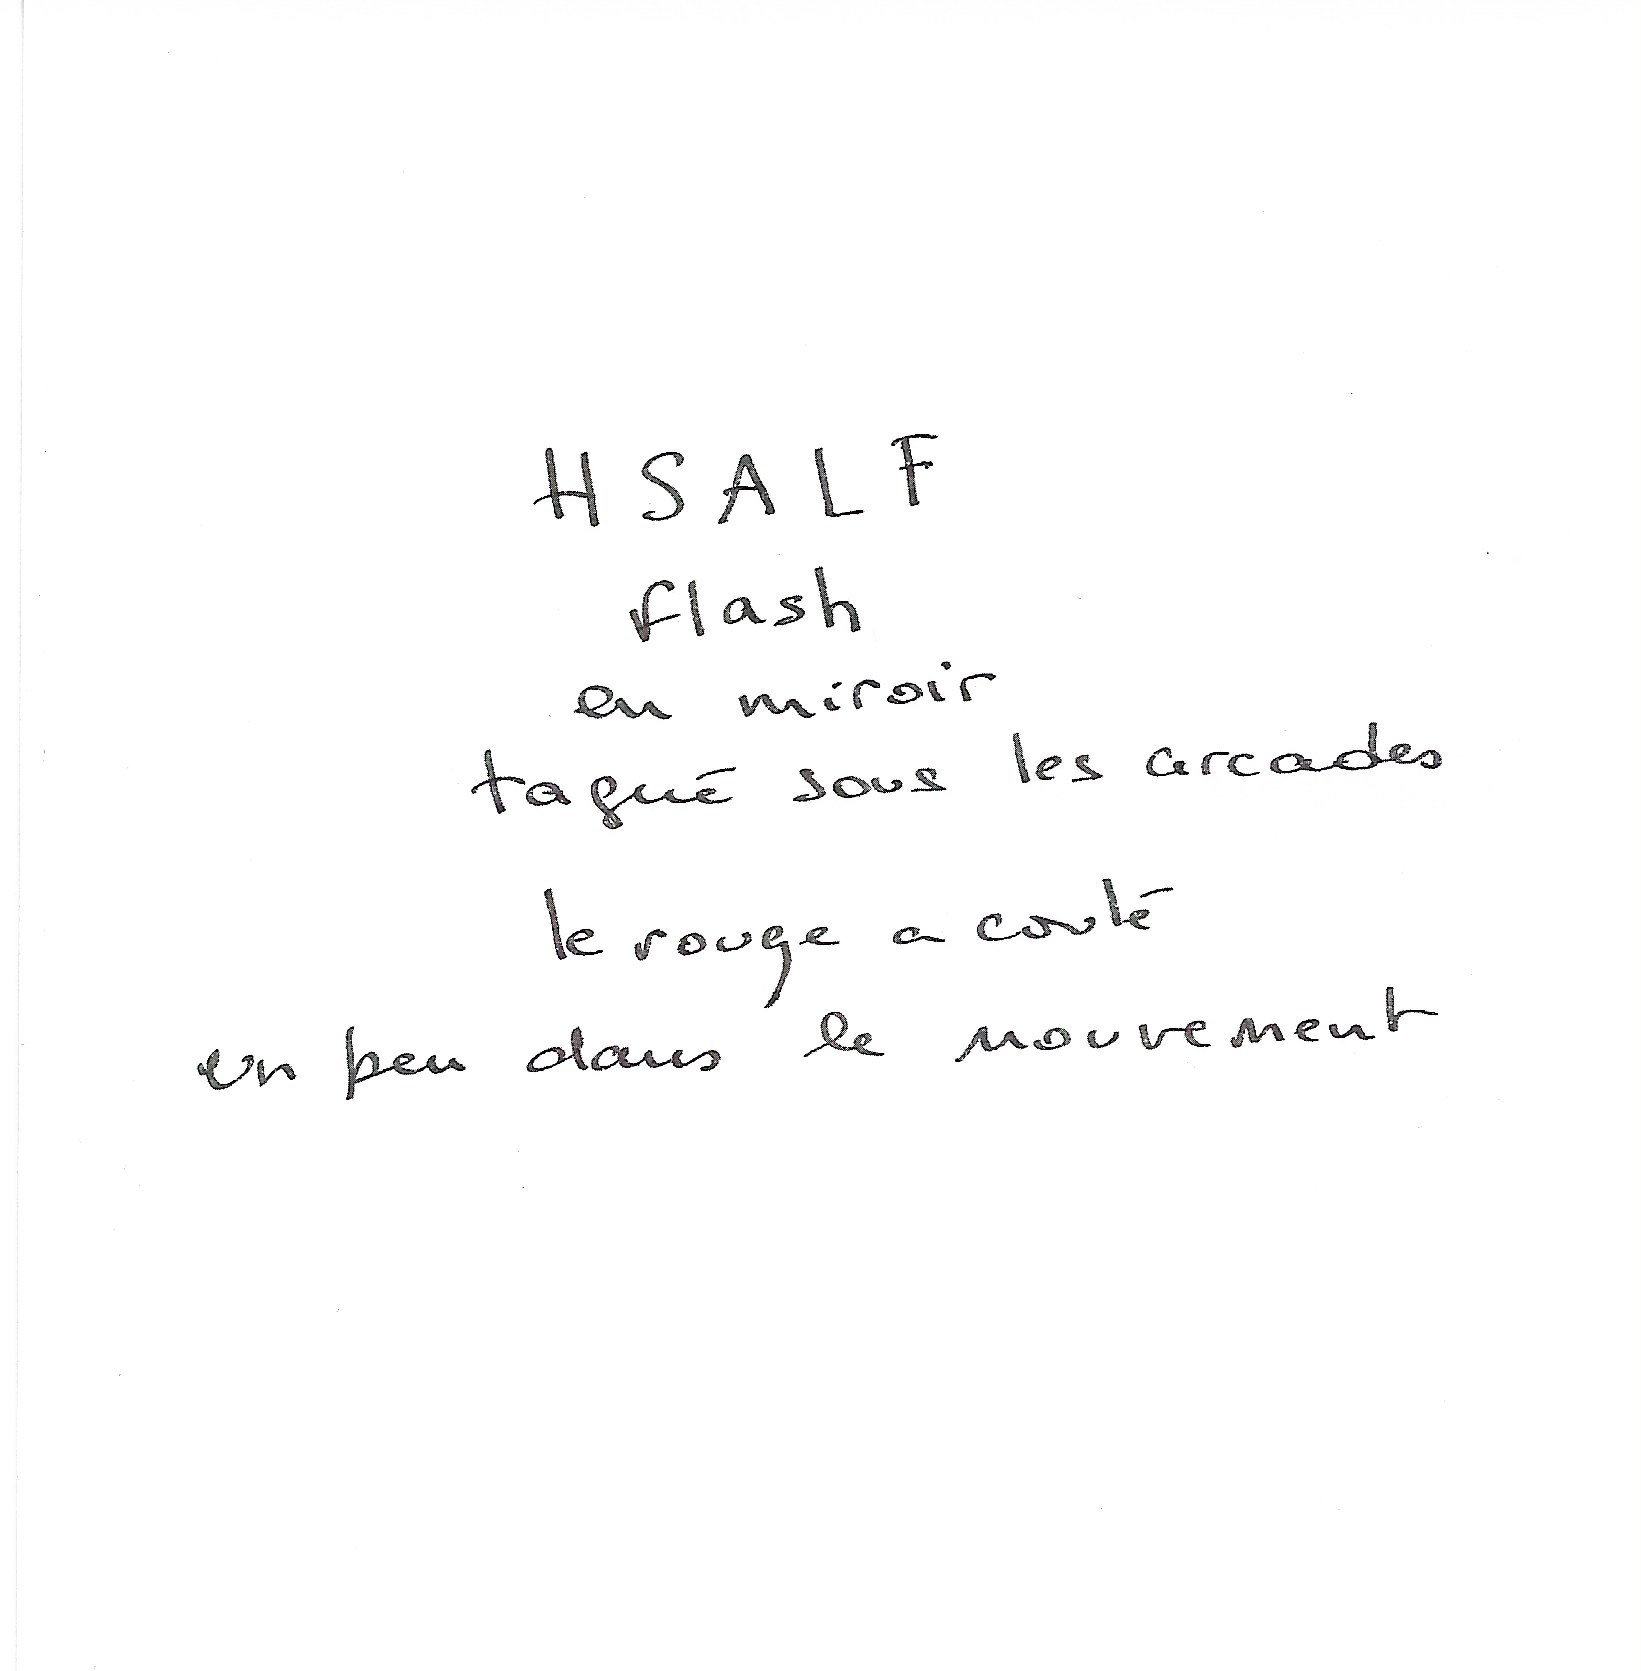 HSALF
flash
en miroir
tagué sous les arcades
le rouge a coulé
un peu dans le mouvement